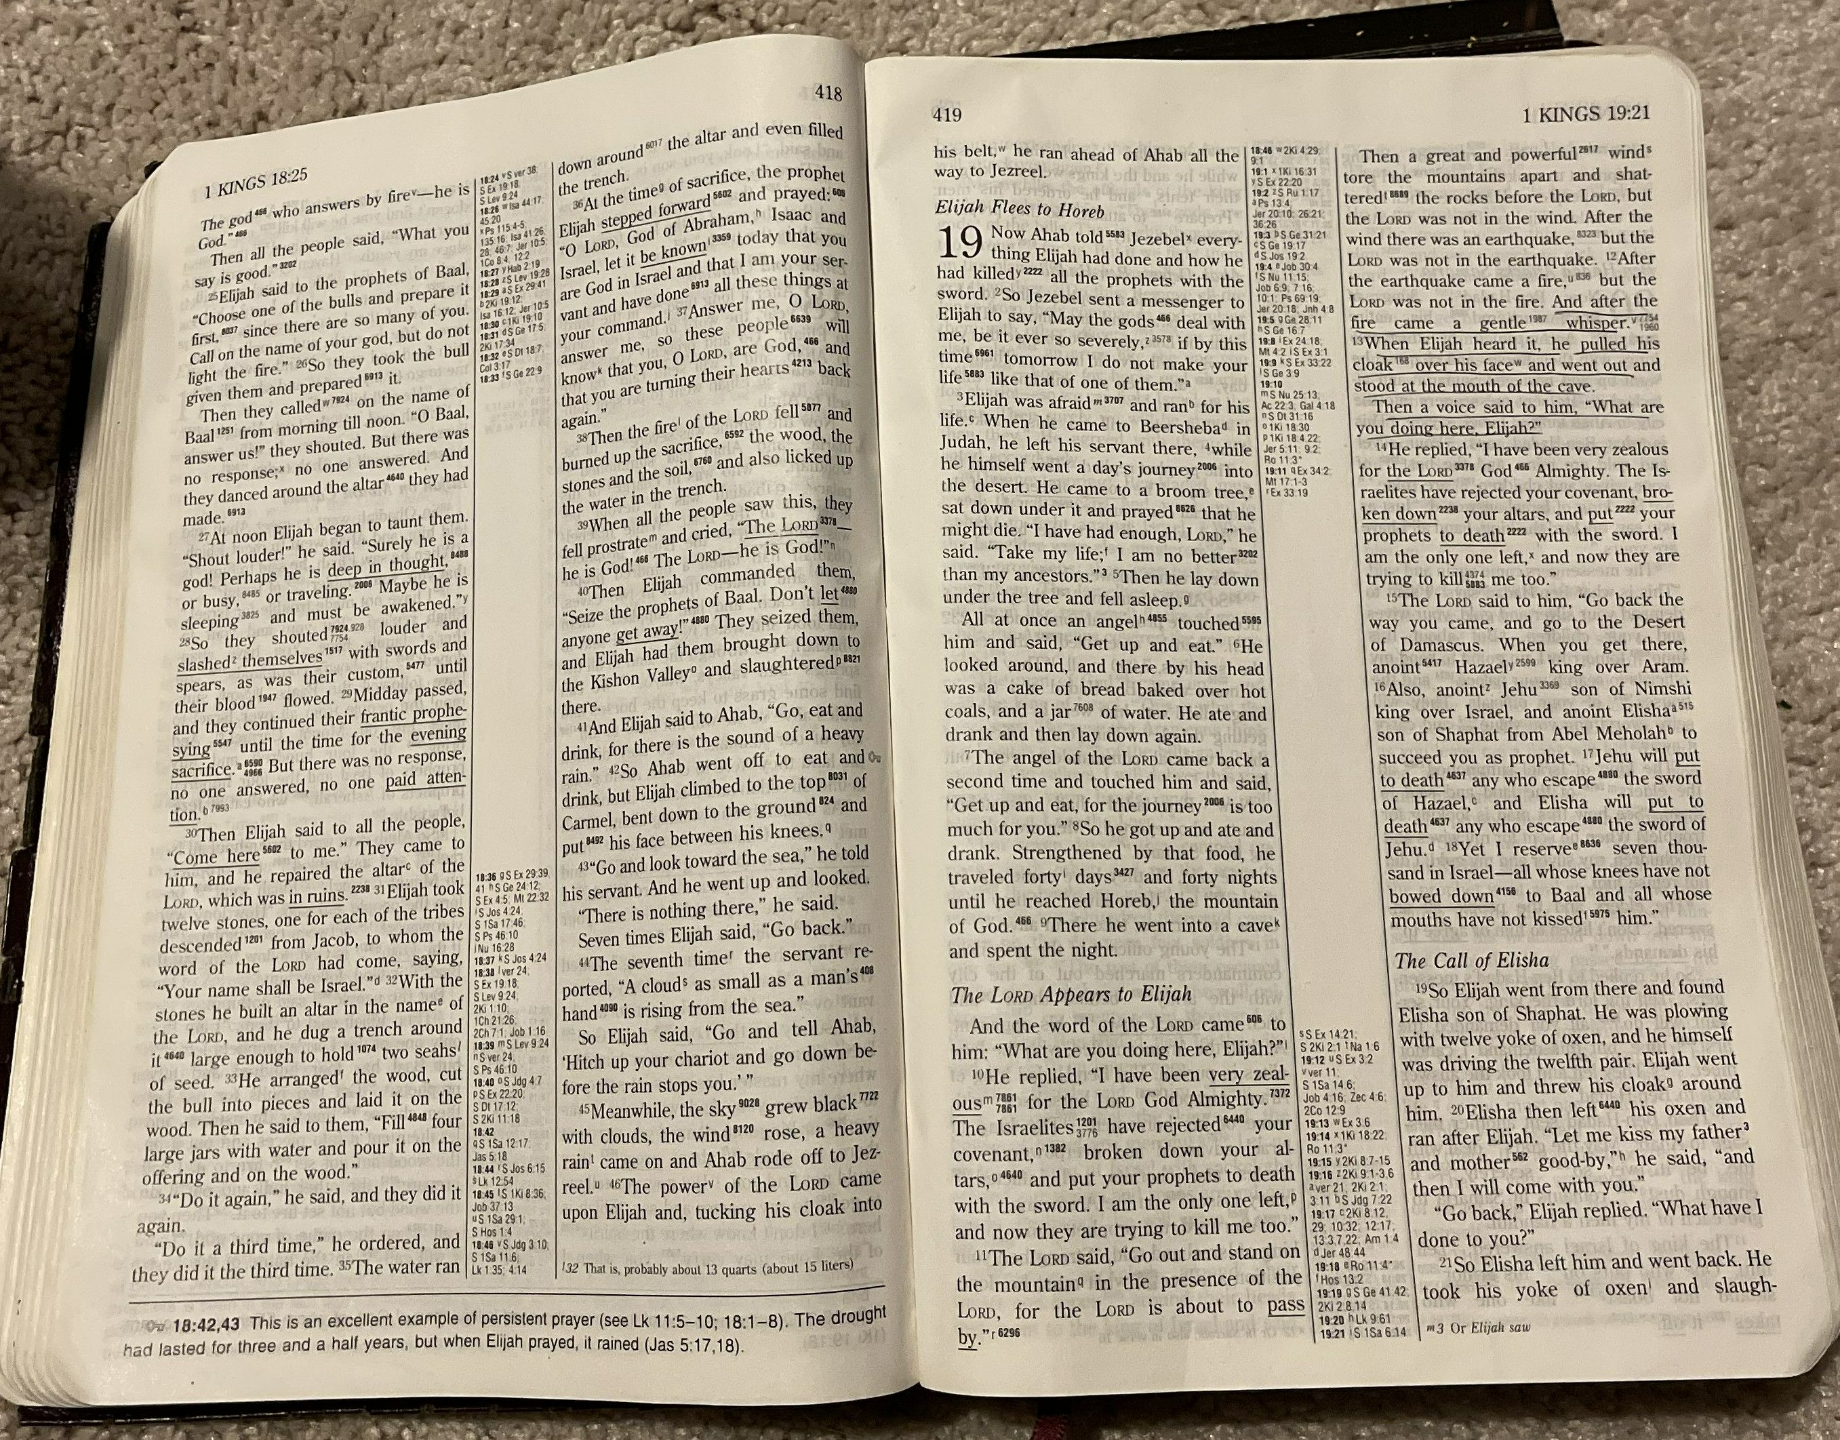 418
1 KINGS 18:25
The god⁴⁶⁶ who answers by fireᵛ—he is
God."⁴⁶⁶
Then all the people said, "What you
say is good."³²⁰²
²⁵Elijah said to the prophets of Baal,
"Choose one of the bulls and prepare it
first,⁸⁰³⁷ since there are so many of you.
Call on the name of your god, but do not
light the fire." ²⁶So they took the bull
given them and prepared⁶⁹¹³ it.
Then they calledʷ⁷⁹²⁴ on the name of
Baal¹²⁵¹ from morning till noon. "O Baal,
answer us!" they shouted. But there was
no response;ˣ no one answered. And
they danced around the altar⁴⁶⁴⁰ they had
made.⁶⁹¹³
²⁷At noon Elijah began to taunt them.
"Shout louder!" he said. "Surely he is a
god! Perhaps he is deep in thought,⁸⁴⁸⁸
or busy,⁸⁴⁸⁵ or traveling.²⁰⁰⁶ Maybe he is
sleeping³⁸²⁵ and must be awakened."ʸ
²⁸So they shouted⁷⁹²⁴,⁹²⁸ ⁷⁷⁵⁴ louder and
slashedᶻ themselves¹⁵¹⁷ with swords and
spears, as was their custom,⁵⁴⁷⁷ until
their blood¹⁹⁴⁷ flowed. ²⁹Midday passed,
and they continued their frantic prophe-
sying⁵⁵⁴⁷ until the time for the evening
sacrifice.ᵃ ⁶⁵⁹⁰ ⁴⁹⁶⁶ But there was no response,
no one answered, no one paid atten-
tion.ᵇ⁷⁹⁹³
³⁰Then Elijah said to all the people,
"Come here⁵⁶⁰² to me." They came to
him, and he repaired the altarᶜ of the
LORD, which was in ruins.²²³⁸ ³¹Elijah took
twelve stones, one for each of the tribes
descended¹²⁰¹ from Jacob, to whom the
word of the LORD had come, saying,
"Your name shall be Israel."ᵈ ³²With the
stones he built an altar in the nameᵉ of
the LORD, and he dug a trench around
it⁴⁶⁴⁰ large enough to hold¹⁰⁷⁴ two seahsᶠ
of seed. ³³He arrangedᶠ the wood, cut
the bull into pieces and laid it on the
wood. Then he said to them, "Fill⁴⁸⁴⁸ four
large jars with water and pour it on the
offering and on the wood."
³⁴"Do it again," he said, and they did it
again.
"Do it a third time," he ordered, and
they did it the third time. ³⁵The water ran
18:24 ᵛS ver 38;
S Ex 19:18;
S Lev 9:24
18:26 ʷIsa 44:17;
45:20
ˣPs 115:4-5;
135:16; Isa 41:26,
28; 46:7; Jer 10:5;
1Co 8:4; 12:2
18:27 ʸHab 2:19
18:28 ᶻS Lev 19:28
18:29 ᵃS Ex 29:41
ᵇ2Ki 19:12;
Isa 16:12; Jer 10:5
18:30 ᶜ1Ki 19:10
18:31 ᵈS Ge 17:5;
2Ki 17:34
18:32 ᵉS Dt 18:7;
Col 3:17
18:33 ᶠS Ge 22:9
18:36 ᵍS Ex 29:39,
41 ʰS Ge 24:12;
S Ex 4:5; Mt 22:32
ⁱS Jos 4:24;
S 1Sa 17:46;
S Ps 46:10
ʲNu 16:28
18:37 ᵏS Jos 4:24
18:38 ˡver 24;
S Ex 19:18;
S Lev 9:24;
2Ki 1:10;
1Ch 21:26;
2Ch 7:1; Job 1:16
18:39 ᵐS Lev 9:24
ⁿS ver 24;
S Ps 46:10
18:40 ᵒS Jdg 4:7
ᵖS Ex 22:20;
S Dt 17:12;
S 2Ki 11:18
18:42
ᑫS 1Sa 12:17;
Jas 5:18
18:44 ʳS Jos 6:15
ˢLk 12:54
18:45 ᵗS 1Ki 8:36;
Job 37:13
ᵘS 1Sa 29:1;
S Hos 1:4
18:46 ᵛS Jdg 3:10;
S 1Sa 11:6;
Lk 1:35; 4:14
down around⁶⁰¹⁷ the altar and even filled
the trench.
³⁶At the timeᵍ of sacrifice, the prophet
Elijah stepped forward⁵⁶⁰² and prayed:⁶⁰⁶
"O LORD, God of Abraham,ʰ Isaac and
Israel, let it be knownⁱ³³⁵⁹ today that you
are God in Israel and that I am your ser-
vant and have done⁶⁹¹³ all these things at
your command.ʲ ³⁷Answer me, O LORD,
answer me, so these people⁶⁶³⁹ will
knowᵏ that you, O LORD, are God,⁴⁶⁶ and
that you are turning their hearts⁴²¹³ back
again."
³⁸Then the fireˡ of the LORD fell⁵⁸⁷⁷ and
burned up the sacrifice,⁶⁵⁹² the wood, the
stones and the soil,⁶⁷⁶⁰ and also licked up
the water in the trench.
³⁹When all the people saw this, they
fell prostrateᵐ and cried, "The LORD³³⁷⁸—
he is God!⁴⁶⁶ The LORD—he is God!"ⁿ
⁴⁰Then Elijah commanded them,
"Seize the prophets of Baal. Don't let⁴⁸⁸⁰
anyone get away!"⁴⁸⁸⁰ They seized them,
and Elijah had them brought down to
the Kishon Valleyᵒ and slaughteredᵖ⁸⁸²¹
there.
⁴¹And Elijah said to Ahab, "Go, eat and
drink, for there is the sound of a heavy
rain." ⁴²So Ahab went off to eat and
drink, but Elijah climbed to the top⁸⁰³¹ of
Carmel, bent down to the ground⁸²⁴ and
put⁸⁴⁹² his face between his knees.ᑫ
⁴³"Go and look toward the sea," he told
his servant. And he went up and looked.
"There is nothing there," he said.
Seven times Elijah said, "Go back."
⁴⁴The seventh timeʳ the servant re-
ported, "A cloudˢ as small as a man's⁴⁰⁸
hand⁴⁰⁹⁰ is rising from the sea."
So Elijah said, "Go and tell Ahab,
'Hitch up your chariot and go down be-
fore the rain stops you.' "
⁴⁵Meanwhile, the sky⁹⁰²⁸ grew black⁷⁷²²
with clouds, the wind⁸¹²⁰ rose, a heavy
rainᵗ came on and Ahab rode off to Jez-
reel.ᵘ ⁴⁶The powerᵛ of the LORD came
upon Elijah and, tucking his cloak into
ᶠ32 That is, probably about 13 quarts (about 15 liters)
18:42,43 This is an excellent example of persistent prayer (see Lk 11:5–10; 18:1–8). The drought
had lasted for three and a half years, but when Elijah prayed, it rained (Jas 5:17,18).
419
1 KINGS 19:21
his belt,ʷ he ran ahead of Ahab all the
way to Jezreel.
Elijah Flees to Horeb
19 Now Ahab told⁵⁵⁸³ Jezebelˣ every-
thing Elijah had done and how he
had killedʸ²²²² all the prophets with the
sword. ²So Jezebel sent a messenger to
Elijah to say, "May the gods⁴⁶⁶ deal with
me, be it ever so severely,ᶻ³⁵⁷⁸ if by this
time⁶⁹⁶¹ tomorrow I do not make your
life⁵⁸⁸³ like that of one of them."ᵃ
³Elijah was afraidᵐ³⁷⁰⁷ and ranᵇ for his
life.ᶜ When he came to Beershebaᵈ in
Judah, he left his servant there, ⁴while
he himself went a day's journey²⁰⁰⁶ into
the desert. He came to a broom tree,ᵉ
sat down under it and prayed⁸⁶²⁶ that he
might die. "I have had enough, LORD," he
said. "Take my life;ᶠ I am no better³²⁰²
than my ancestors."³ ⁵Then he lay down
under the tree and fell asleep.ᵍ
All at once an angelʰ⁴⁸⁵⁵ touched⁵⁵⁹⁵
him and said, "Get up and eat." ⁶He
looked around, and there by his head
was a cake of bread baked over hot
coals, and a jar⁷⁶⁰⁸ of water. He ate and
drank and then lay down again.
⁷The angel of the LORD came back a
second time and touched him and said,
"Get up and eat, for the journey²⁰⁰⁶ is too
much for you." ⁸So he got up and ate and
drank. Strengthened by that food, he
traveled fortyⁱ days³⁴²⁷ and forty nights
until he reached Horeb,ʲ the mountain
of God.⁴⁶⁶ ⁹There he went into a caveᵏ
and spent the night.
The LORD Appears to Elijah
And the word of the LORD came⁶⁰⁶ to
him: "What are you doing here, Elijah?"ˡ
¹⁰He replied, "I have been very zeal-
ousᵐ ⁷⁸⁶¹ ⁷⁸⁶¹ for the LORD God Almighty.⁷³⁷²
The Israelites¹²⁰¹ ³⁷⁷⁶ have rejected⁶⁴⁴⁰ your
covenant,ⁿ¹³⁸² broken down your al-
tars,ᵒ⁴⁶⁴⁰ and put your prophets to death
with the sword. I am the only one left,ᵖ
and now they are trying to kill me too."
¹¹The LORD said, "Go out and stand on
the mountainᑫ in the presence of the
LORD, for the LORD is about to pass
by."ʳ⁶²⁹⁶
18:46 ʷ2Ki 4:29;
9:1
19:1 ˣ1Ki 16:31
ʸS Ex 22:20
19:2 ᶻS Ru 1:17
ᵃPs 13:4;
Jer 20:10; 26:21;
36:26
19:3 ᵇS Ge 31:21
ᶜS Ge 19:17
ᵈS Jos 19:2
19:4 ᵉJob 30:4
ᶠS Nu 11:15;
Job 6:9; 7:16;
10:1; Ps 69:19;
Jer 20:18; Jnh 4:8
19:5 ᵍGe 28:11
ʰS Ge 16:7
19:8 ⁱEx 24:18;
Mt 4:2 ʲS Ex 3:1
19:9 ᵏS Ex 33:22
ˡS Ge 3:9
19:10
ᵐS Nu 25:13;
Ac 22:3; Gal 4:18
ⁿS Dt 31:16
ᵒ1Ki 18:30
ᵖ1Ki 18:4,22;
Jer 5:11; 9:2;
Ro 11:3*
19:11 ᑫEx 34:2;
Mt 17:1-3
ʳEx 33:19
ˢS Ex 14:21;
S 2Ki 2:1 ᵗNa 1:6
19:12 ᵘS Ex 3:2
ᵛver 11;
S 1Sa 14:6;
Job 4:16; Zec 4:6;
2Co 12:9
19:13 ʷEx 3:6
19:14 ˣ1Ki 18:22;
Ro 11:3*
19:15 ʸ2Ki 8:7-15
19:16 ᶻ2Ki 9:1-3,6
ᵃver 21; 2Ki 2:1;
3:11 ᵇS Jdg 7:22
19:17 ᶜ2Ki 8:12,
29; 10:32; 12:17;
13:3,7,22; Am 1:4
ᵈJer 48:44
19:18 ᵉRo 11:4*
ᶠHos 13:2
19:19 ᵍS Ge 41:42;
2Ki 2:8,14
19:20 ʰLk 9:61
19:21 ⁱS 1Sa 6:14
Then a great and powerful²⁶¹⁷ windˢ
tore the mountains apart and shat-
teredᵗ⁸⁶⁸⁹ the rocks before the LORD, but
the LORD was not in the wind. After the
wind there was an earthquake,⁸³²³ but the
LORD was not in the earthquake. ¹²After
the earthquake came a fire,ᵘ⁸³⁶ but the
LORD was not in the fire. And after the
fire came a gentle¹⁹⁸⁷ whisper.ᵛ ⁷⁷⁵⁴ ¹⁹⁶⁰
¹³When Elijah heard it, he pulled his
cloak¹⁶⁸ over his faceʷ and went out and
stood at the mouth of the cave.
Then a voice said to him, "What are
you doing here, Elijah?"
¹⁴He replied, "I have been very zealous
for the LORD³³⁷⁸ God⁴⁶⁶ Almighty. The Is-
raelites have rejected your covenant, bro-
ken down²²³⁸ your altars, and put²²²² your
prophets to death²²²² with the sword. I
am the only one left,ˣ and now they are
trying to kill⁴³⁷⁴ ⁵⁸⁸³ me too."
¹⁵The LORD said to him, "Go back the
way you came, and go to the Desert
of Damascus. When you get there,
anoint⁵⁴¹⁷ Hazaelʸ²⁵⁹⁹ king over Aram.
¹⁶Also, anointᶻ Jehu³³⁶⁹ son of Nimshi
king over Israel, and anoint Elishaᵃ⁵¹⁵
son of Shaphat from Abel Meholahᵇ to
succeed you as prophet. ¹⁷Jehu will put
to death⁴⁶³⁷ any who escape⁴⁸⁸⁰ the sword
of Hazael,ᶜ and Elisha will put to
death⁴⁶³⁷ any who escape⁴⁸⁸⁰ the sword of
Jehu.ᵈ ¹⁸Yet I reserveᵉ⁸⁶³⁶ seven thou-
sand in Israel—all whose knees have not
bowed down⁴¹⁵⁶ to Baal and all whose
mouths have not kissedᶠ⁵⁹⁷⁵ him."
The Call of Elisha
¹⁹So Elijah went from there and found
Elisha son of Shaphat. He was plowing
with twelve yoke of oxen, and he himself
was driving the twelfth pair. Elijah went
up to him and threw his cloakᵍ around
him. ²⁰Elisha then left⁶⁴⁴⁰ his oxen and
ran after Elijah. "Let me kiss my father³
and mother⁵⁶² good-by,"ʰ he said, "and
then I will come with you."
"Go back," Elijah replied. "What have I
done to you?"
²¹So Elisha left him and went back. He
took his yoke of oxenⁱ and slaugh-
ᵐ3 Or Elijah saw